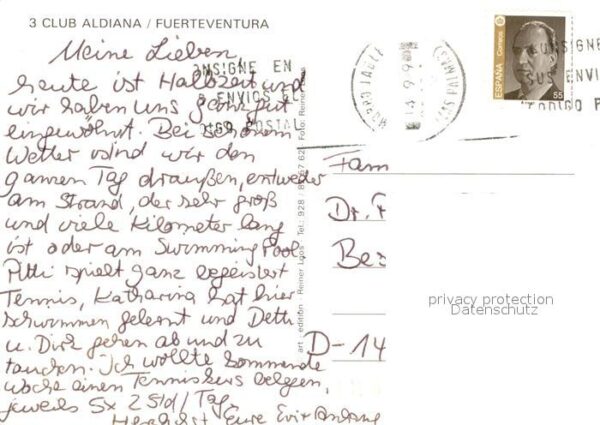 3 CLUB ALDIANA / FUERTEVENTURA
Meine Lieben,
heute ist Halbzeit und
wir haben uns ganz gut
eingewöhnt. Bei schönem
Wetter sind wir den
ganzen Tag draußen, entweder
am Strand, der sehr groß
und viele Kilometer lang
ist oder am Swimming Pool
spielt ganz begeistert
Tennis, Katharina hat hier
schwimmen gelernt und
u. Dirk gehen ab und zu
tauchen. Ich wollte kommende
Woche einen Tenniskurs belegen,
jeweils 5x 2 Std/Tag.
Herzlichst Eure
art - edition · Reiner Loos · Tel.: 928 / 87 67 62 Foto: Reiner Loos
ONSIGNE EN
ENVIOS EL
IGO POSTAL
MORRO JABLE
(LAS PALMAS)
ESPAÑA
Correos
55
ONSIGNE
SUS ENVIO
CODIGO P
Fam
Dr.
Bes
D-14
privacy protection
Datenschutz